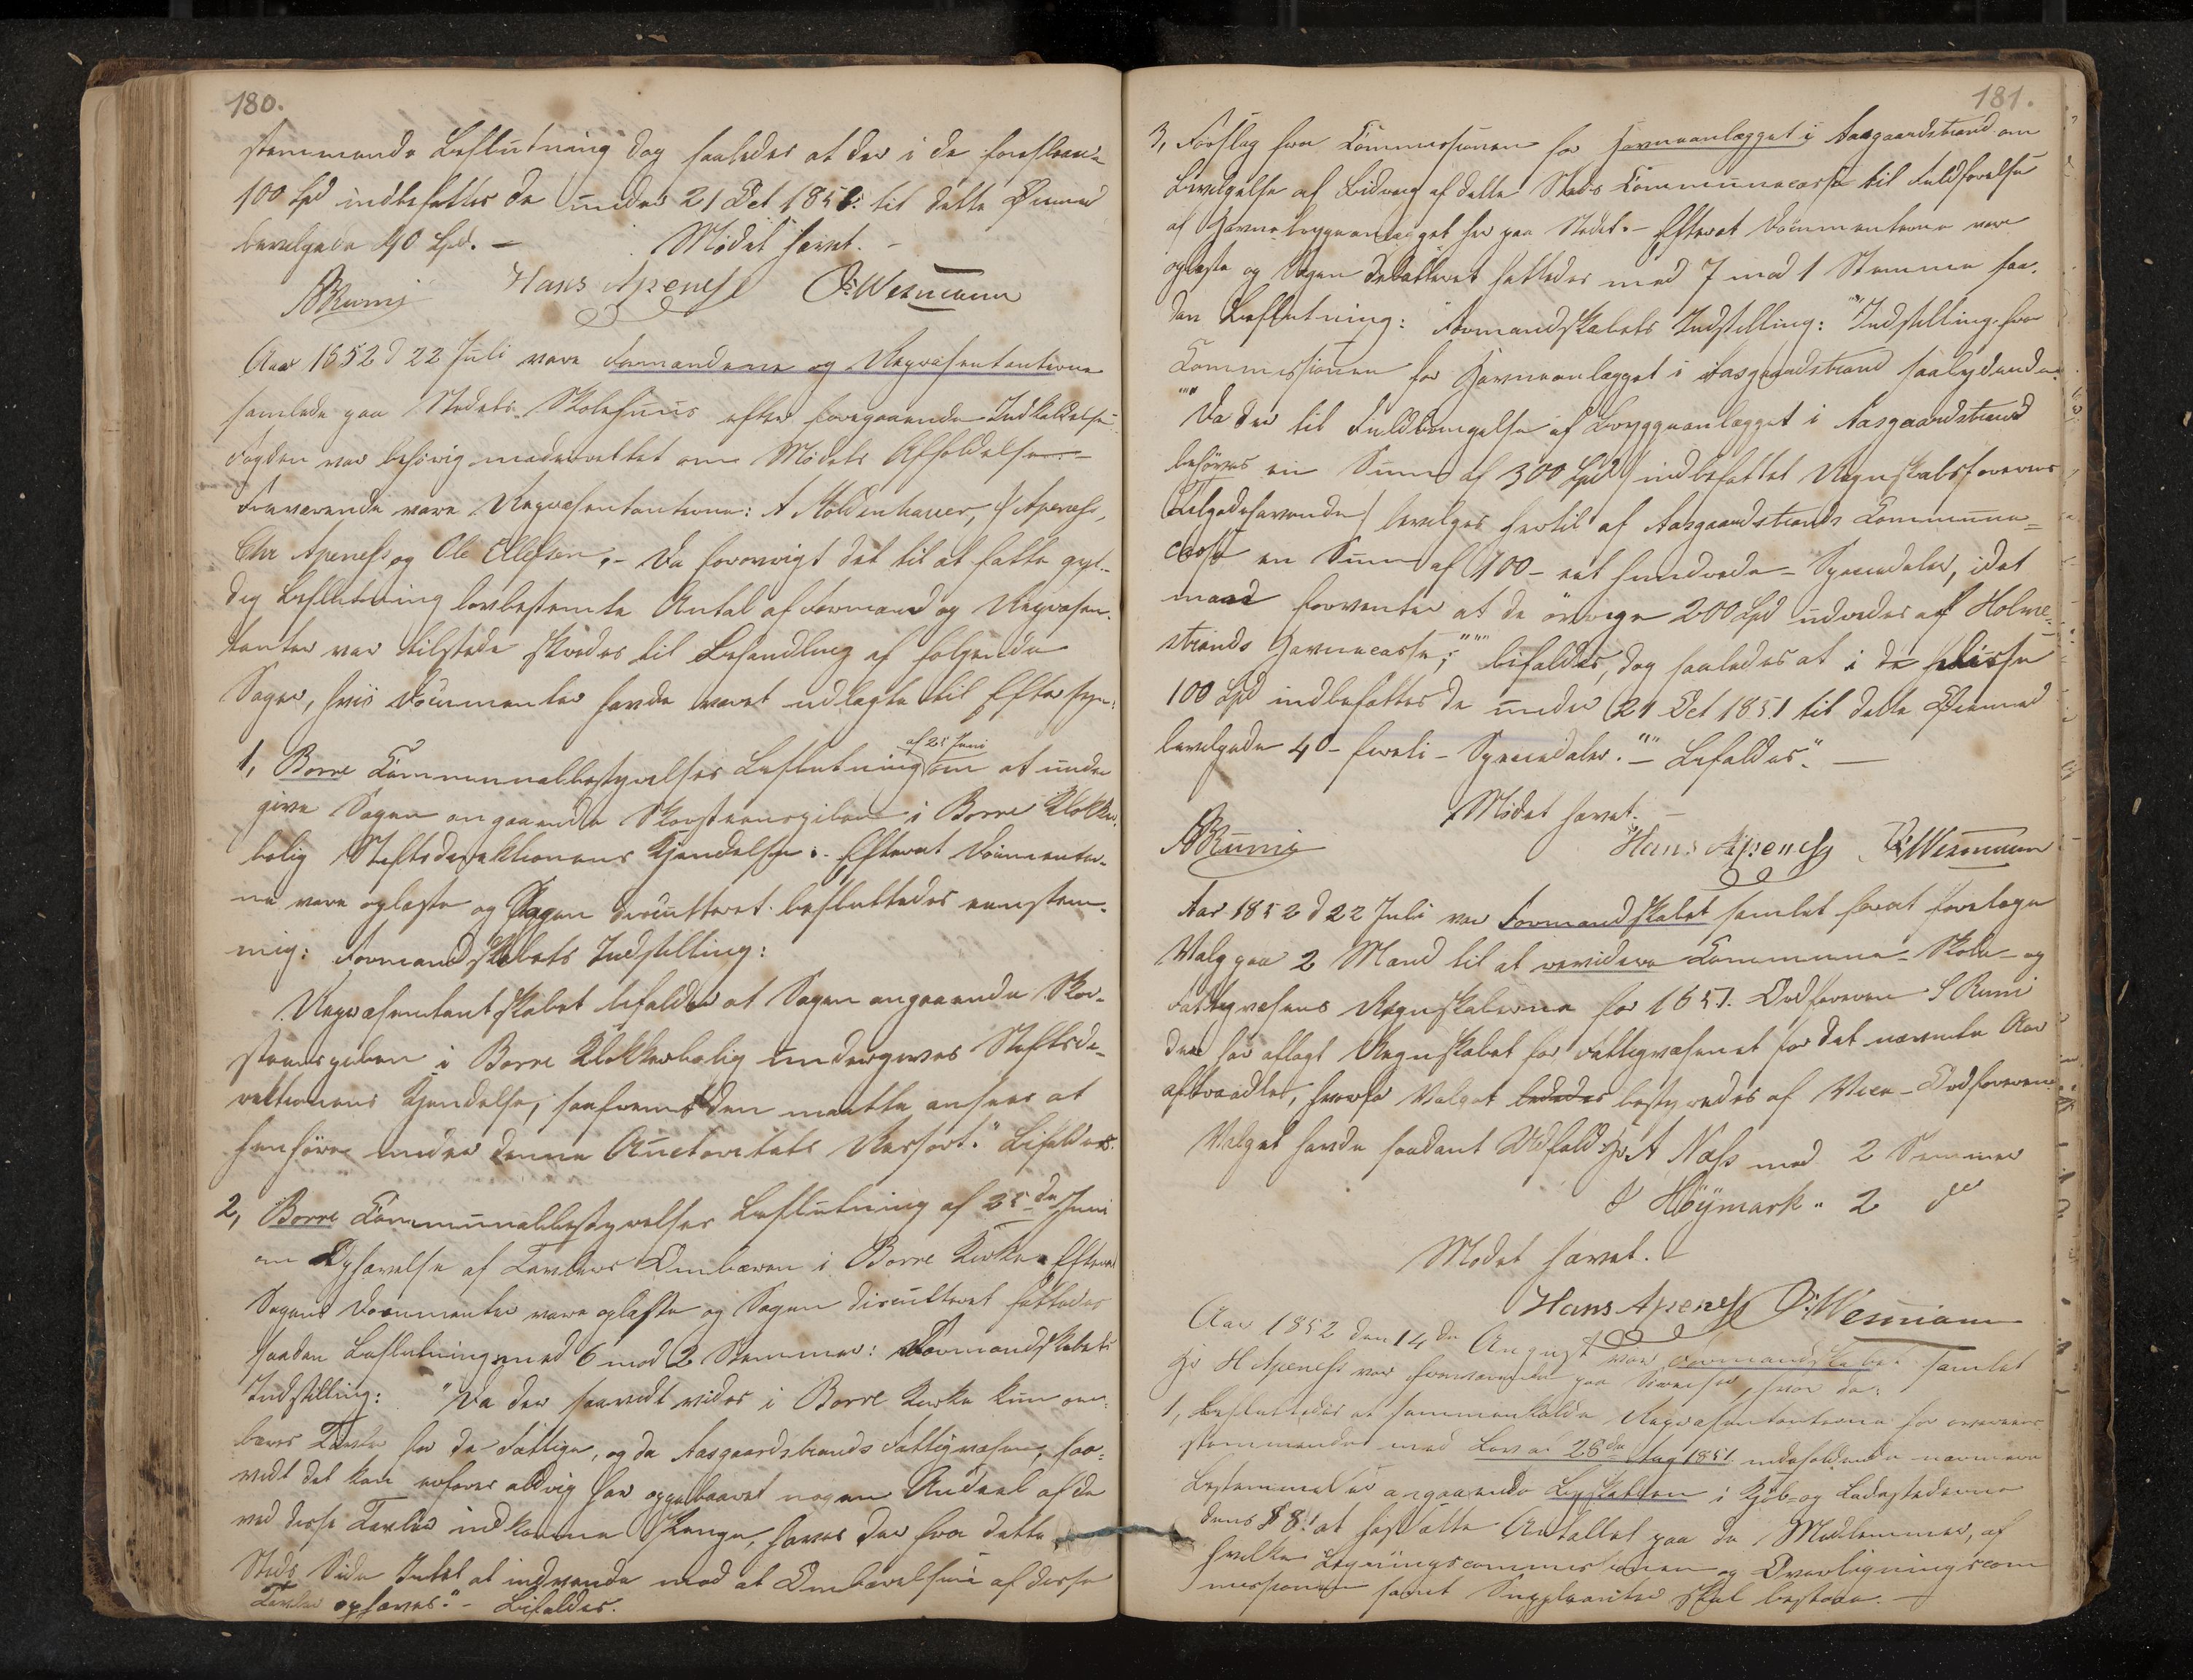 180.
stemmende Beslutning dog saaledes at der i de foreslaae
100 Spd indbefattes de under 21 Oct 1851 til dette Øiemed
bevilgede 40 Spd. — Mødet hævet. –
Hans Apeness O. Wesmann
Aar 1852 d 22 Juli vare Formændene og Repræsentanterne
samlede paa Stedets Skolehuus efter foregaaende Indkaldelse
Fogden var behörig underrettet om Mödets Afholdelse. –
Fraværende vare Repræsentanterne: A Moldenhauer, Apeness,
Chr Apeness og Ole Ellefsen. – Da forøvrigt det til at fatte gyl-
dig Beslutning lovbestemte Antal af Formænd og Repræsen-
tanter var tilstede skredes til Behandling af følgende
Sager, hvis Documenter havde været udlagte til Eftersyn:
af 25 Juni
1, Borre Communalbestyrelses Beslutning om at under
give Sagen angaaende Skorsteenspiben i Borre Klokker-
bolig Stiftsdirektionens Kjendelse. – Efterat Documenter-
ne vare oplæste og Sagen discutteret besluttedes eenstem-
mig: Formandskabets Indstilling:
"Repræsentantskabet bifalder at Sagen angaaende Skor-
steenspiben i Borre Klokkerbolig undergives Stiftsdi-
rektionens Kjendelse, saafremt den maatte ansees at
henhöre under denne Auctoritets Ressort." Bifaldes.
2, Borre Communalbestyrelses Beslutning af 25de Juni
om Ophævelse af Tavlers Ombæren i Borre Kirke. Efterat
Sagens Documenter vare oplæste og Sagen discutteret fattedes
saadan Beslutning med 6 mod 2 Stemmer: Formandskabets
Indstilling: "Da der saavidt vides i Borre Kirke kun om-
bæres Tavler for de Fattige, og da Aasgaardstrands Fattigvæsen, saa-
vidt det kan erfares aldrig har oppebaaret nogen Andeel af de
ved disse Tavler indkomne Penge, haves der fra dette
Steds Side Intet at indvende mod at Ombærelsen af disse
Tavler ophæves." – Bifaldes.
181.
3, Forslag fra Commissionen for Havneanlægget i Aasgaardstrand om
Bevilgelse af Bidrag af dette Steds Communecasse til Fuldførelse
af Havnebryggeanlægget her paa Stedet. – Efterat Documenterne vare
oplæste og Sagen debatteret fattedes med 7 mod 1 Stemme saa-
dan Beslutning: Formandskabets Indstilling: "Indstilling fra
Commissionen for Havneanlægget i Aasgaardstrand saalydende:
"Da der til Fuldbringelse af Bryggeanlægget i Aasgaardstrand
behöves en Sum af 300 Spd (indbefattet Regnskabsførerens
Tilgodehavende) bevilges hertil af Aasgaardstrands Commune-
casse en Sum af 100 – eet hundrede – Speciedaler, idet
man forventer at de övrige 200 Spd udredes af Holme-
strands Havnecasse;" bifaldes, dog saaledes at i de
100 Spd indbefattes de under 21 Oct 1851 til dette Øiemed
bevilgede 40 – førti – Speciedaler." – Bifaldes". —
Mødet hævet. –
Hans Apeness O. Wesmann
Aar 1852 d 22 Juli var Formandskabet samlet forat foretage
Valg paa 2 Mænd til at revidere Commune- Skole- og
Fattigvæsens Regnskaberne for 1851. Ordføreren S Rumi
der har aflagt Regnskabet for Fattigvæsenet for det nævnte Aar
aftraadte, hvorfor Valget ledede bestyredes af Vice-Ordføreren
Valget havde saadant Udfald: Hr A Næss med 2 Stemmer
Höymark " 2 do
Mødet hævet. –
Hans Apeness O. Wesmann
Aar 1852 den 14de August var Formandskabet samlet
Hr H Apeness var fraværende paa hvor da:
1, Besluttedes at sammenkalde Repræsentanterne for overeens-
stemmende med Lov af 28de Aug 1851 indeholdende nærmere
Bestemmelser angaaende Byskatten i Kjøb- og Ladestederne
dens § 8: at fastsætte Antallet paa de Medlemmer, af
hvilke Ligningscommissionen og Overligningscom
missionen samt Suppleanter skal bestaae. —